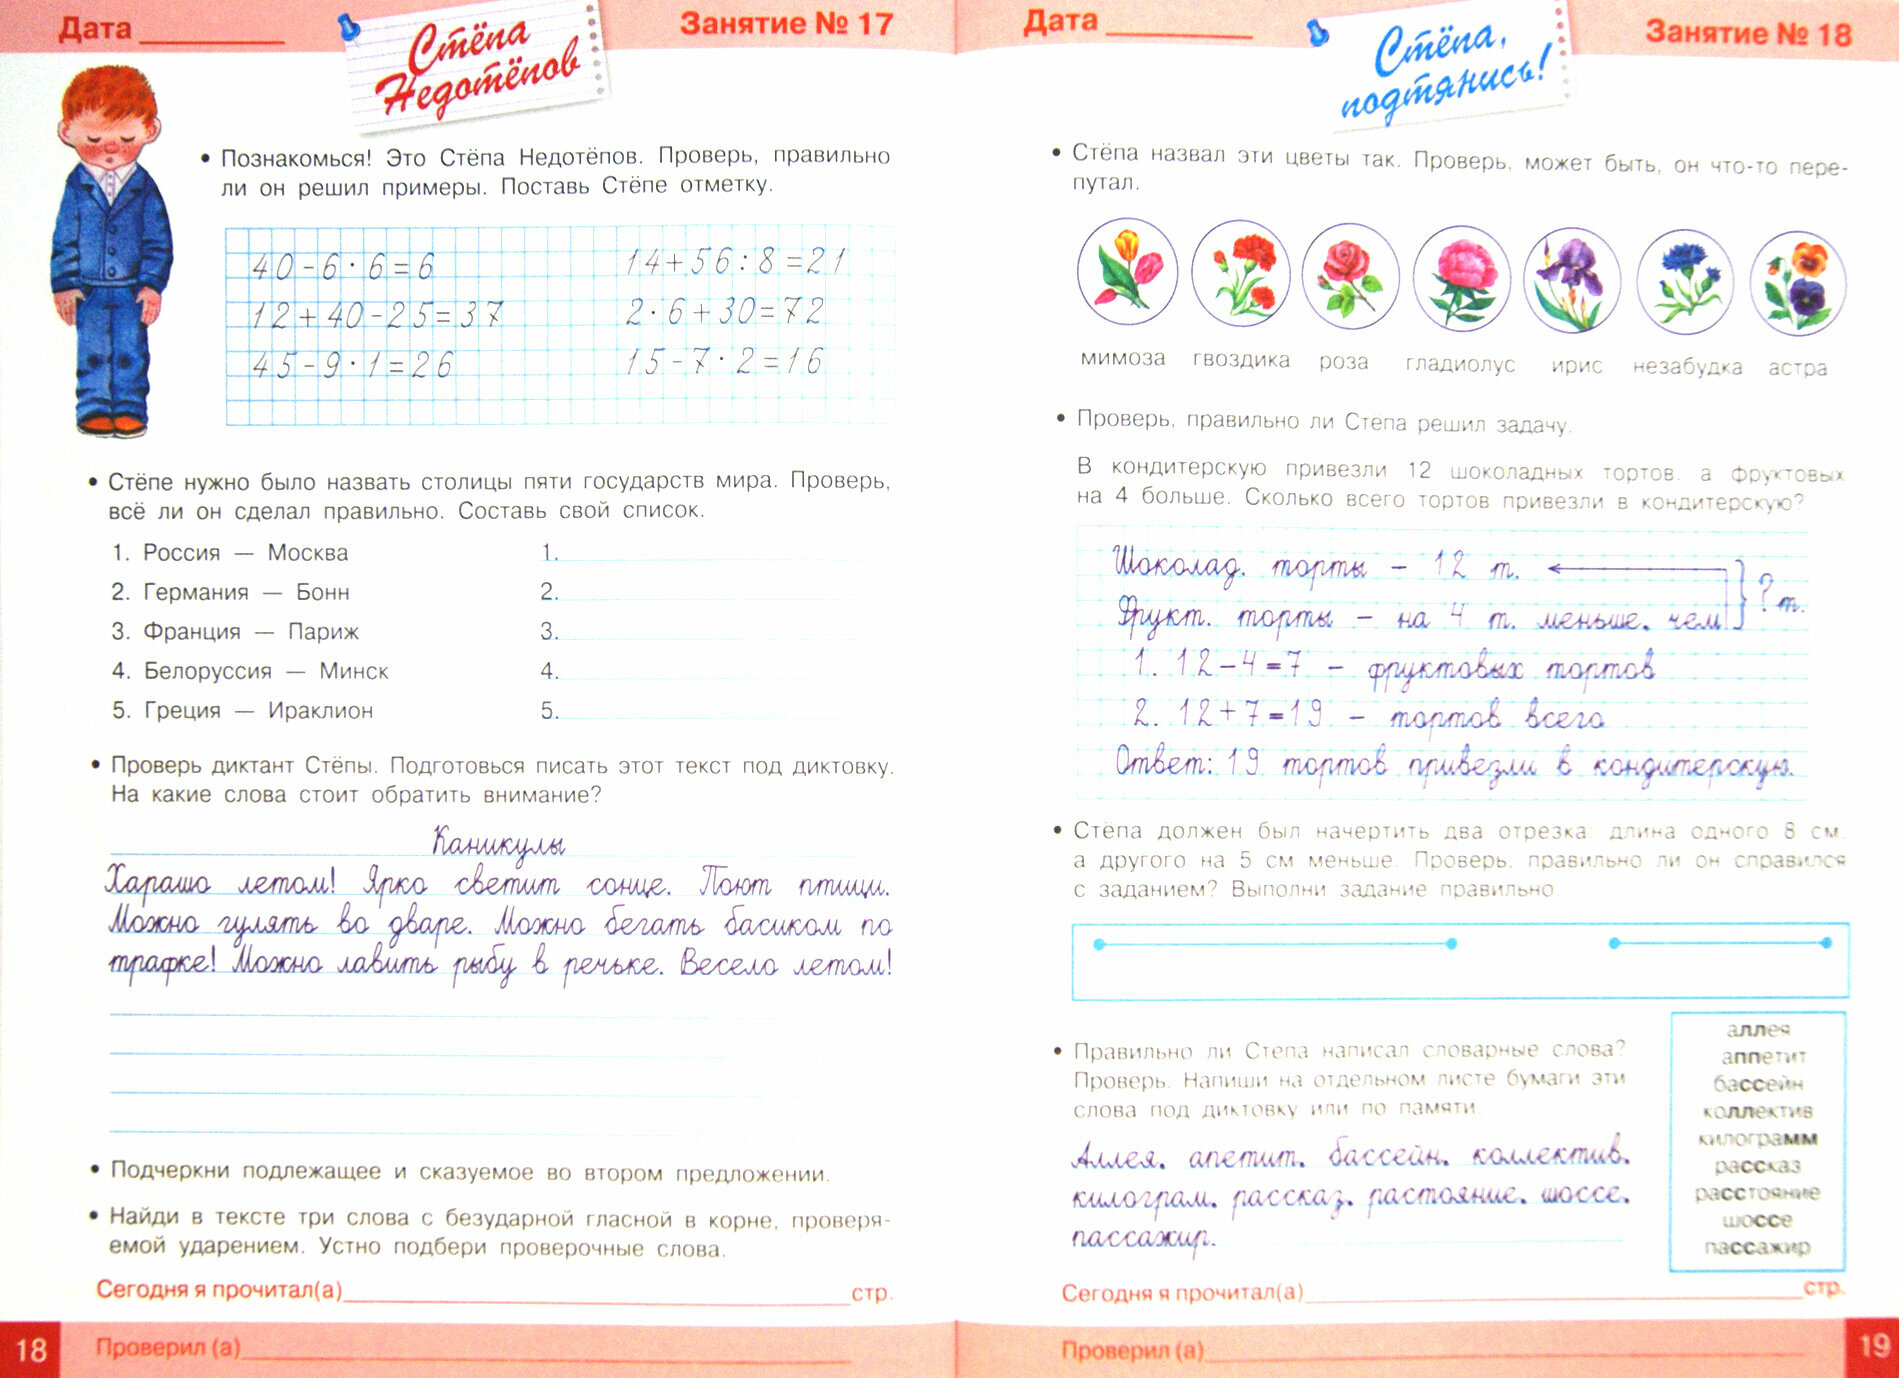 Дата
Стёпа
Недотёпов
Занятие № 17
• Познакомься! Это Стёпа Недотёпов. Проверь, правильно
ли он решил примеры. Поставь Стёпе отметку.
40-6·6=6
14+56:8=21
12+40-25=37
2·6+30=72
45-9·1=26
15-7·2=16
• Стёпе нужно было назвать столицы пяти государств мира. Проверь,
всё ли он сделал правильно. Составь свой список.
1. Россия — Москва
1.
2. Германия — Бонн
2.
3. Франция — Париж
3.
4. Белоруссия — Минск
4.
5. Греция — Ираклион
5.
• Проверь диктант Стёпы. Подготовься писать этот текст под диктовку.
На какие слова стоит обратить внимание?
Каникулы
Харашо летом! Ярко светит сонце. Поют птици.
Можно гулять во дваре. Можно бегать басиком по
трафке! Можно лавить рыбу в речьке. Весело летом!
• Подчеркни подлежащее и сказуемое во втором предложении.
• Найди в тексте три слова с безударной гласной в корне, проверя-
емой ударением. Устно подбери проверочные слова.
Сегодня я прочитал(а) стр.
18
Проверил (а)
Дата
Стёпа,
подтянись!
Занятие № 18
• Стёпа назвал эти цветы так. Проверь, может быть, он что-то пере-
путал.
мимоза гвоздика роза гладиолус ирис незабудка астра
• Проверь, правильно ли Стёпа решил задачу.
В кондитерскую привезли 12 шоколадных тортов, а фруктовых
на 4 больше. Сколько всего тортов привезли в кондитерскую?
Шоколад. торты – 12 т.
? т.
Фрукт. торты – на 4 т. меньше, чем
1. 12-4=7 – фруктовых тортов
2. 12+7=19 – тортов всего
Ответ: 19 тортов привезли в кондитерскую.
• Стёпа должен был начертить два отрезка: длина одного 8 см,
а другого на 5 см меньше. Проверь, правильно ли он справился
с заданием? Выполни задание правильно.
• Правильно ли Стёпа написал словарные слова?
Проверь. Напиши на отдельном листе бумаги эти
слова под диктовку или по памяти.
Аллея, апетит, бассейн, коллектив,
килограм, рассказ, растояние, шоссе,
пассажир.
аллея
аппетит
бассейн
коллектив
килограмм
рассказ
расстояние
шоссе
пассажир
Сегодня я прочитал(а) стр.
Проверил (а)
19